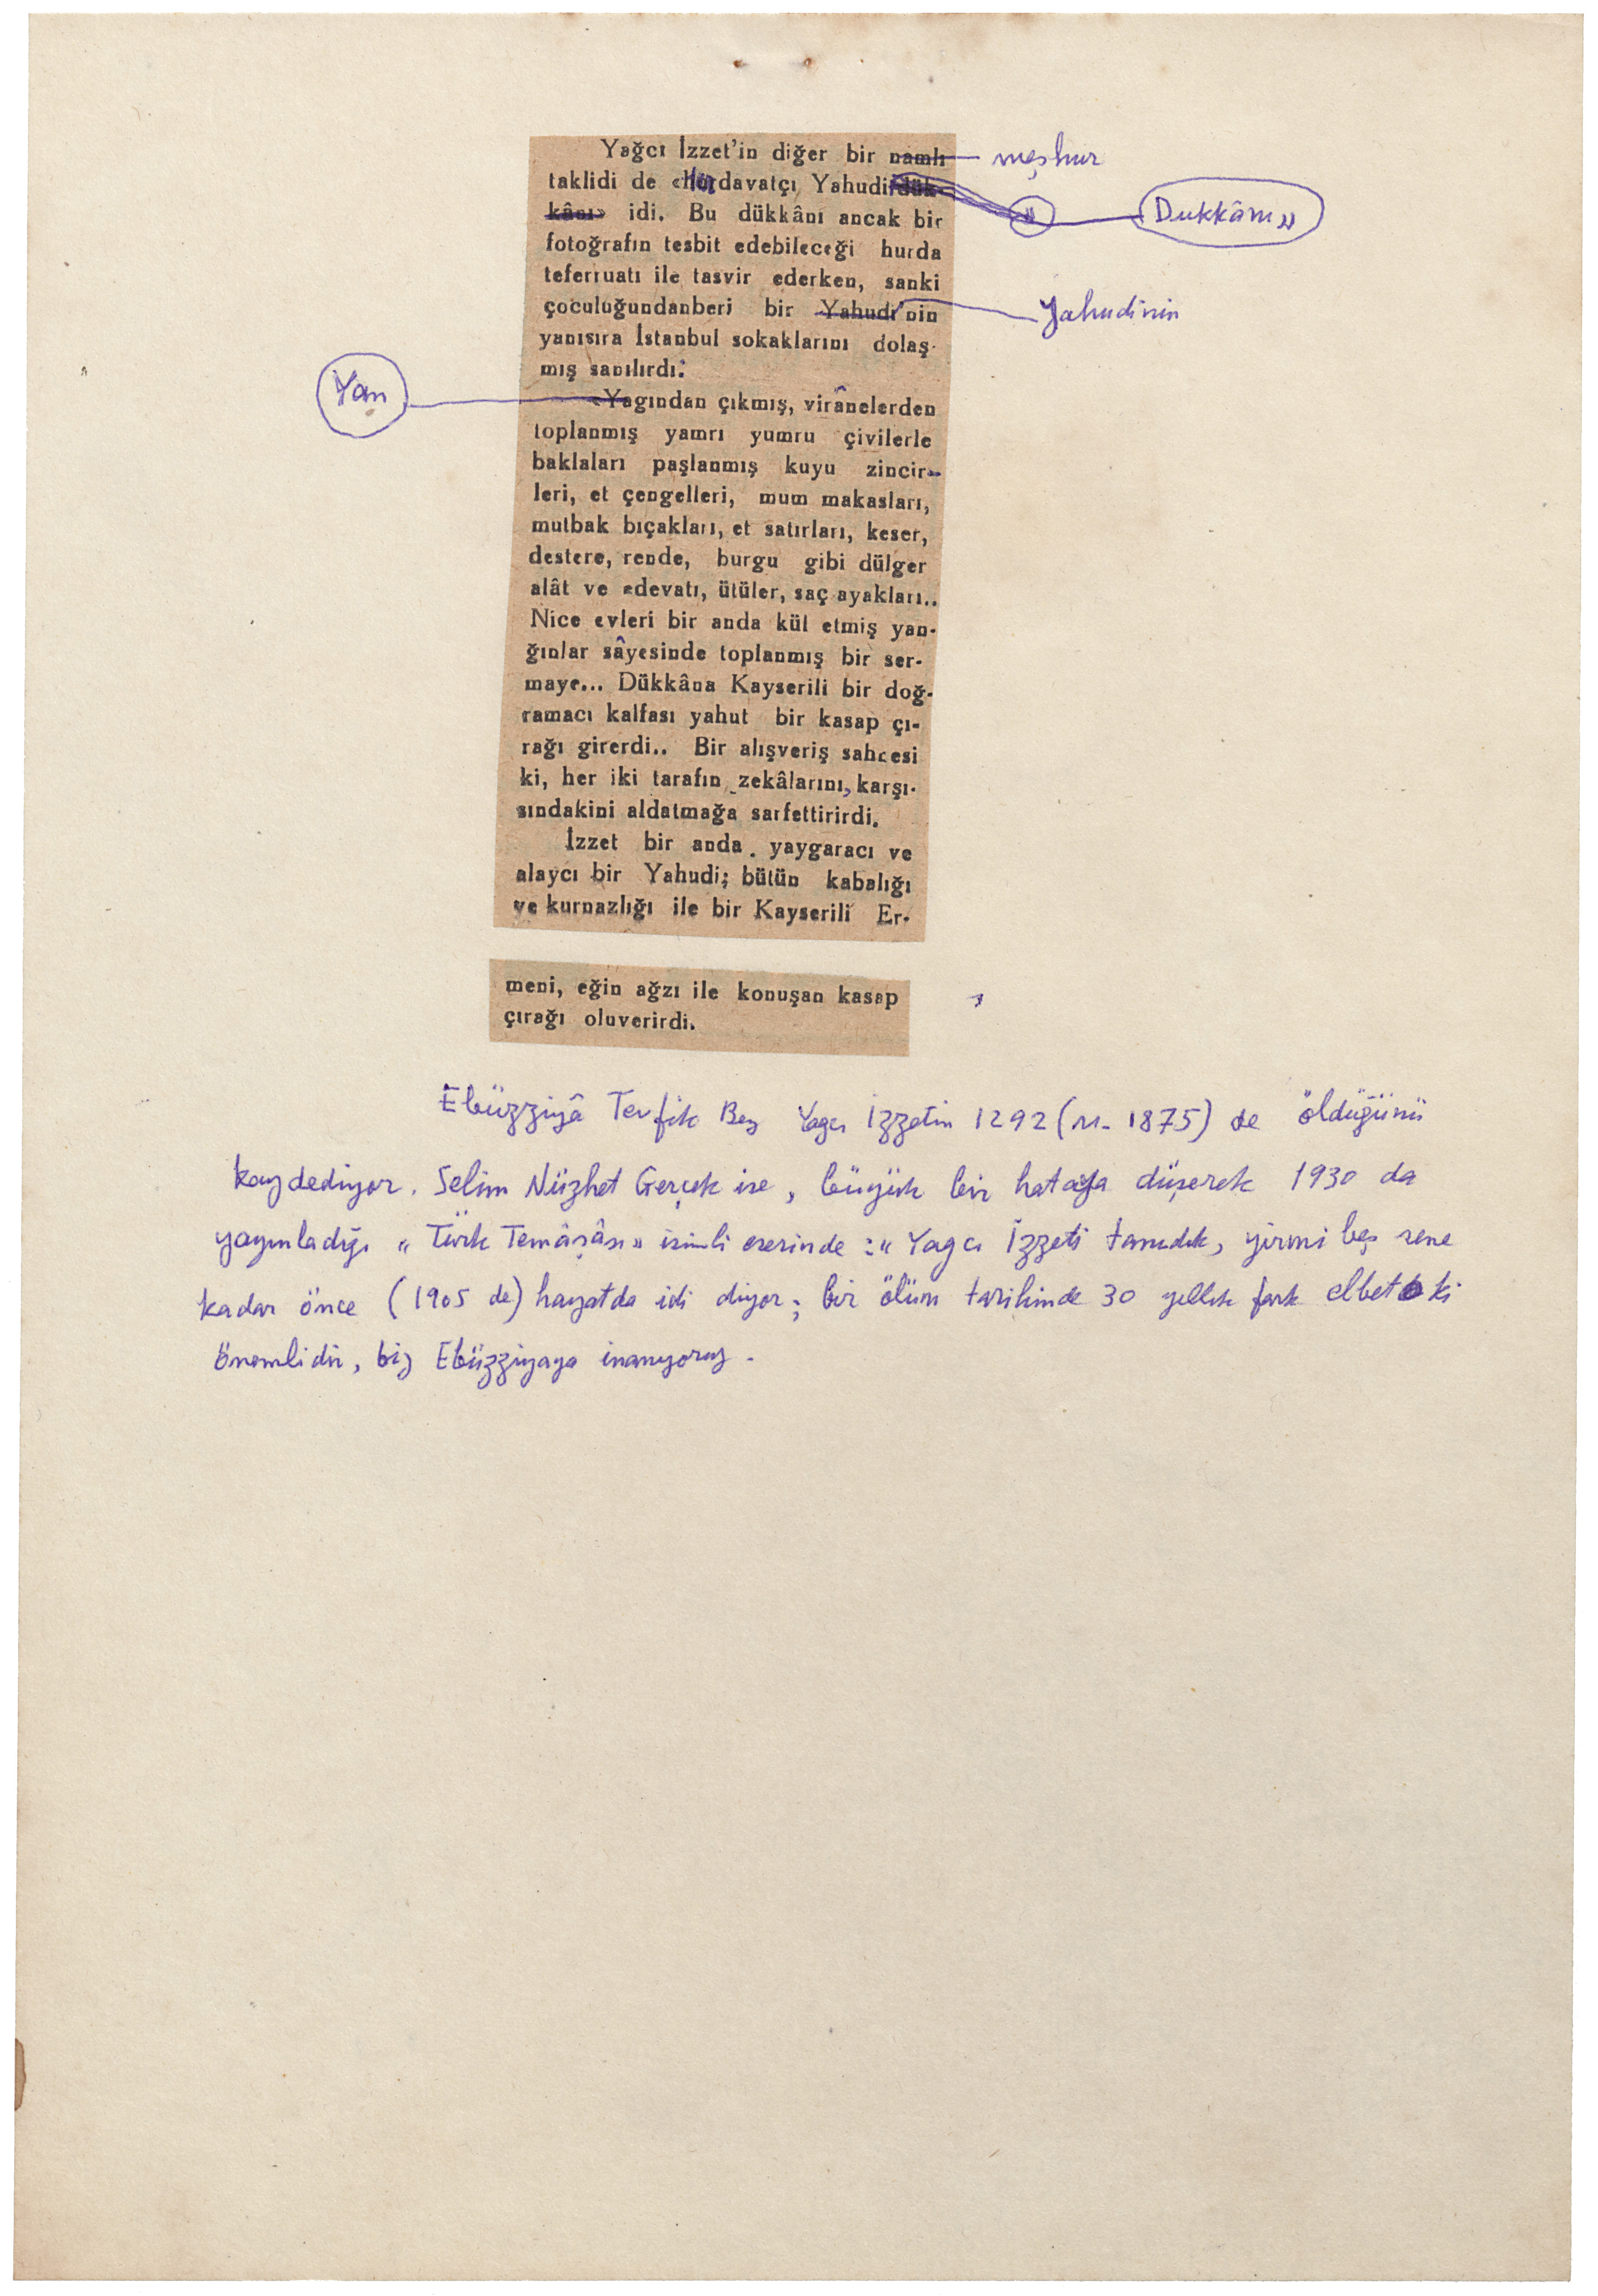 Yağcı İzzet'in diğer bir namlı meşhur
taklidi de «Hırdavatçı Yahudi dük-
kânı» idi. Bu dükkânı ancak bir » Dukkânı»
fotoğrafın tesbit edebileceği hurda
teferruatı ile tasvir ederken, sanki
çoculuğundanberi bir Yahudi'nin Yahudinin
yanısıra İstanbul sokaklarını dolaş-
mış sanılırdı:
Yan «Yagından çıkmış, virânelerden
toplanmış yamrı yumru çivilerle
baklaları paşlanmış kuyu zincir-
leri, et çengelleri, mum makasları,
mutbak bıçakları, et satırları, keser,
destere, rende, burgu gibi dülger
alât ve edevatı, ütüler, saç ayakları..
Nice evleri bir anda kül etmiş yan-
ğınlar sâyesinde toplanmış bir ser-
maye... Dükkâna Kayserili bir doğ-
ramacı kalfası yahut bir kasap çı-
rağı girerdi.. Bir alışveriş sahnesi
ki, her iki tarafın zekâlarını, karşı-
sındakini aldatmağa sarfettirirdi.
İzzet bir anda . yaygaracı ve
alaycı bir Yahudi; bütün kabalığı
ve kurnazlığı ile bir Kayserili Er-
meni, eğin ağzı ile konuşan kasap
çırağı oluverirdi.
Ebüzziyâ Tevfik Bey Yağcı İzzetin 1292 (M. 1875) de öldüğünü
kaydediyor. Selim Nüzhet Gerçek ise, büyük bir hataya düşerek 1930 da
yayınladığı «Türk Temâşâsı» isimli eserinde :« Yagcı İzzeti tanıdık, yirmi beş sene
kadar önce (1905 de) hayatda idi diyor; bir ölüm tarihinde 30 yıllık fark elbet ki
önemlidir, biz Ebüzziyaya inanıyoruz.